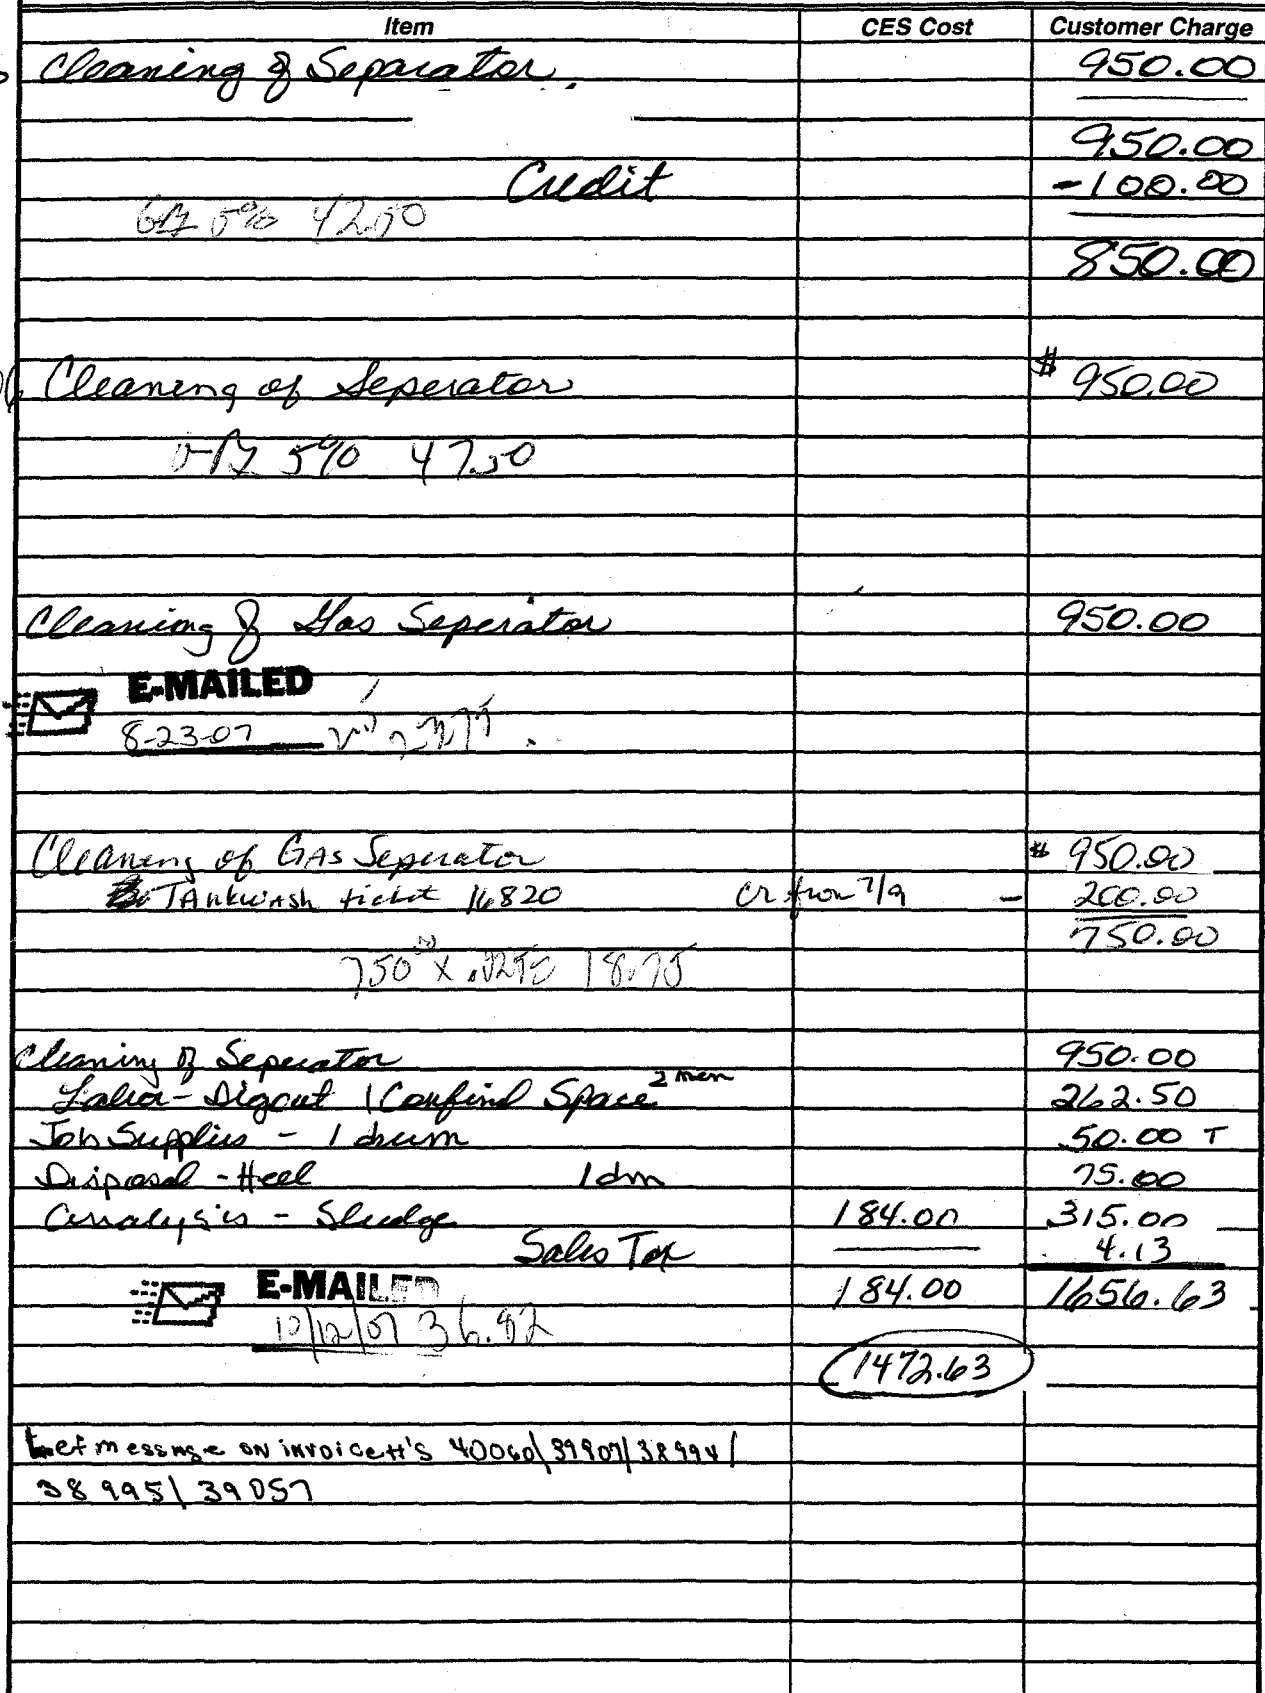 Item CES Cost Customer Charge
Cleaning of Separator. 950.00
950.00
Credit -100.00
5% 42.50
850.00
Cleaning of Seperator $ 950.00
5% 47.50
Cleaning of Gas Seperator 950.00
E-MAILED
8-23-07
Cleaning of GAs Seperator $ 950.00
TAnkwash ticket 16820 Cr from 7/9 - 200.00
750.00
750 x .025 = 18.75
Cleaning of Seperator 950.00
Labor - Digout / Confind Space 2 men 262.50
Job Supplies - 1 drum 50.00 T
Disposal - Heel 1 dm 75.00
Analysis - Sludge 184.00 315.00
Sales Tax 4.13
E-MAILED 184.00 1656.63
10/12/07 36.82
1472.63
Lef message on invoice#'s 40060/39907/38994/
38995/39057